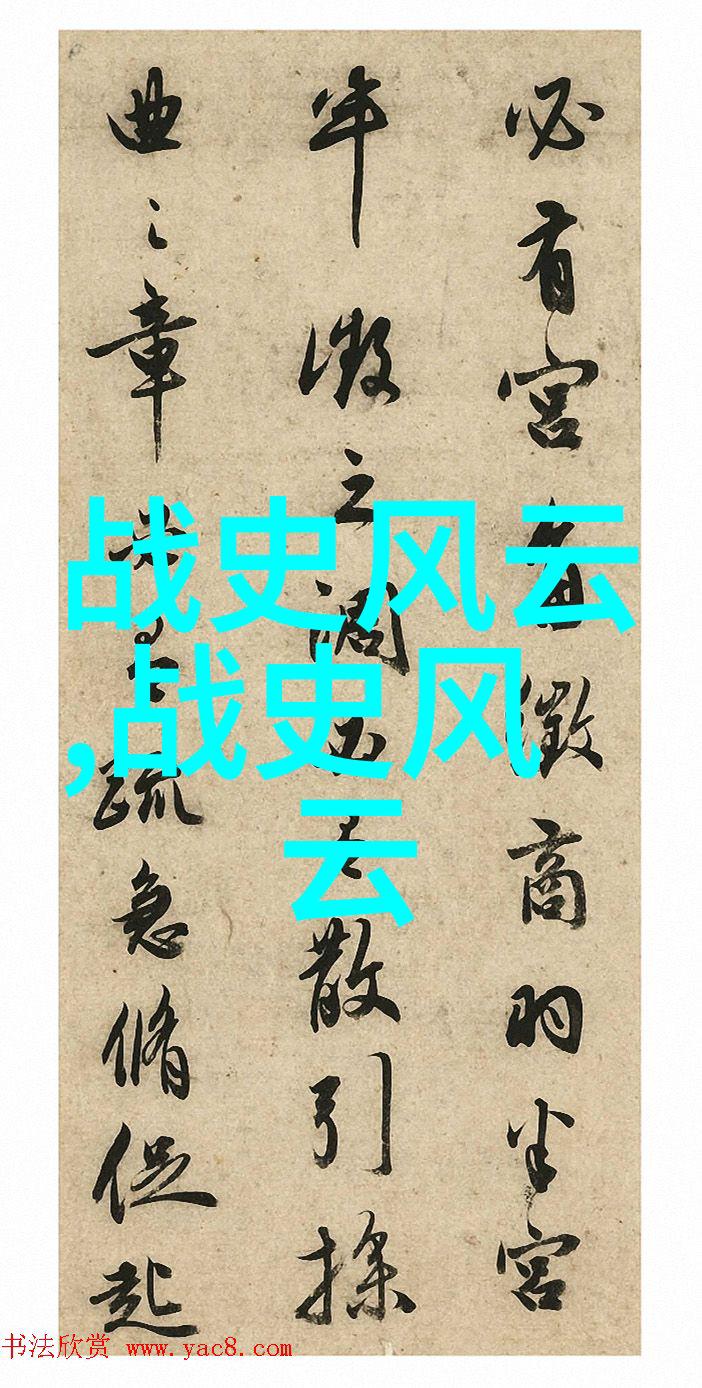 必有宫角徵商羽半宫
半徵之调而是散引操
曲之章必是疏急脩促起
战史风云
,战史风
云
书法欣赏 www.yac8.com